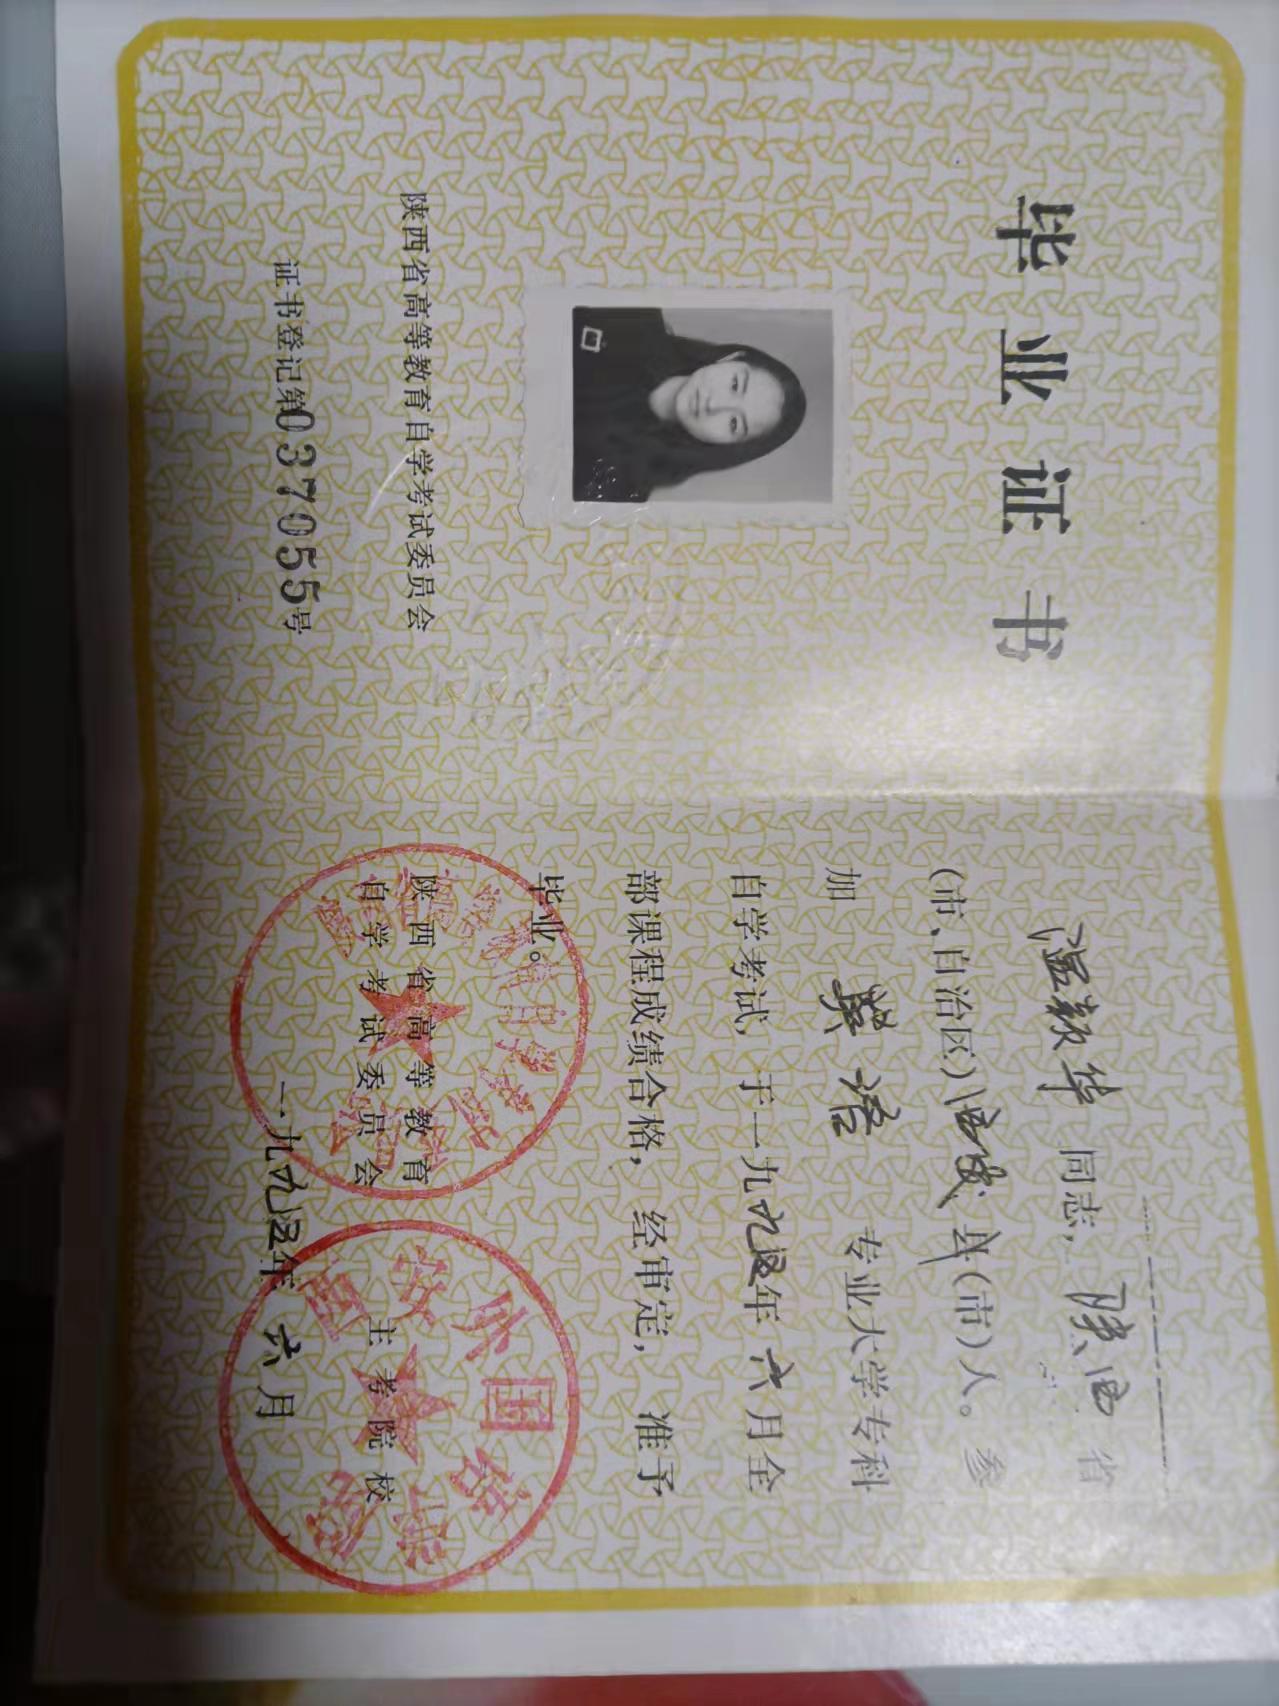 毕业证书
陕西省高等教育自学考试委员会
证书登记第037055号
温颖华 同志, 陕西 省
(市、自治区) 蒲城 县(市)人。参
加 英语 专业大学专科
自学考试, 于一九九五年六月全
部课程成绩合格, 经审定, 准予
毕业。
陕西省高等教育
自学考试委员会
主考院校
西安外国语学院
一九九五年 六月